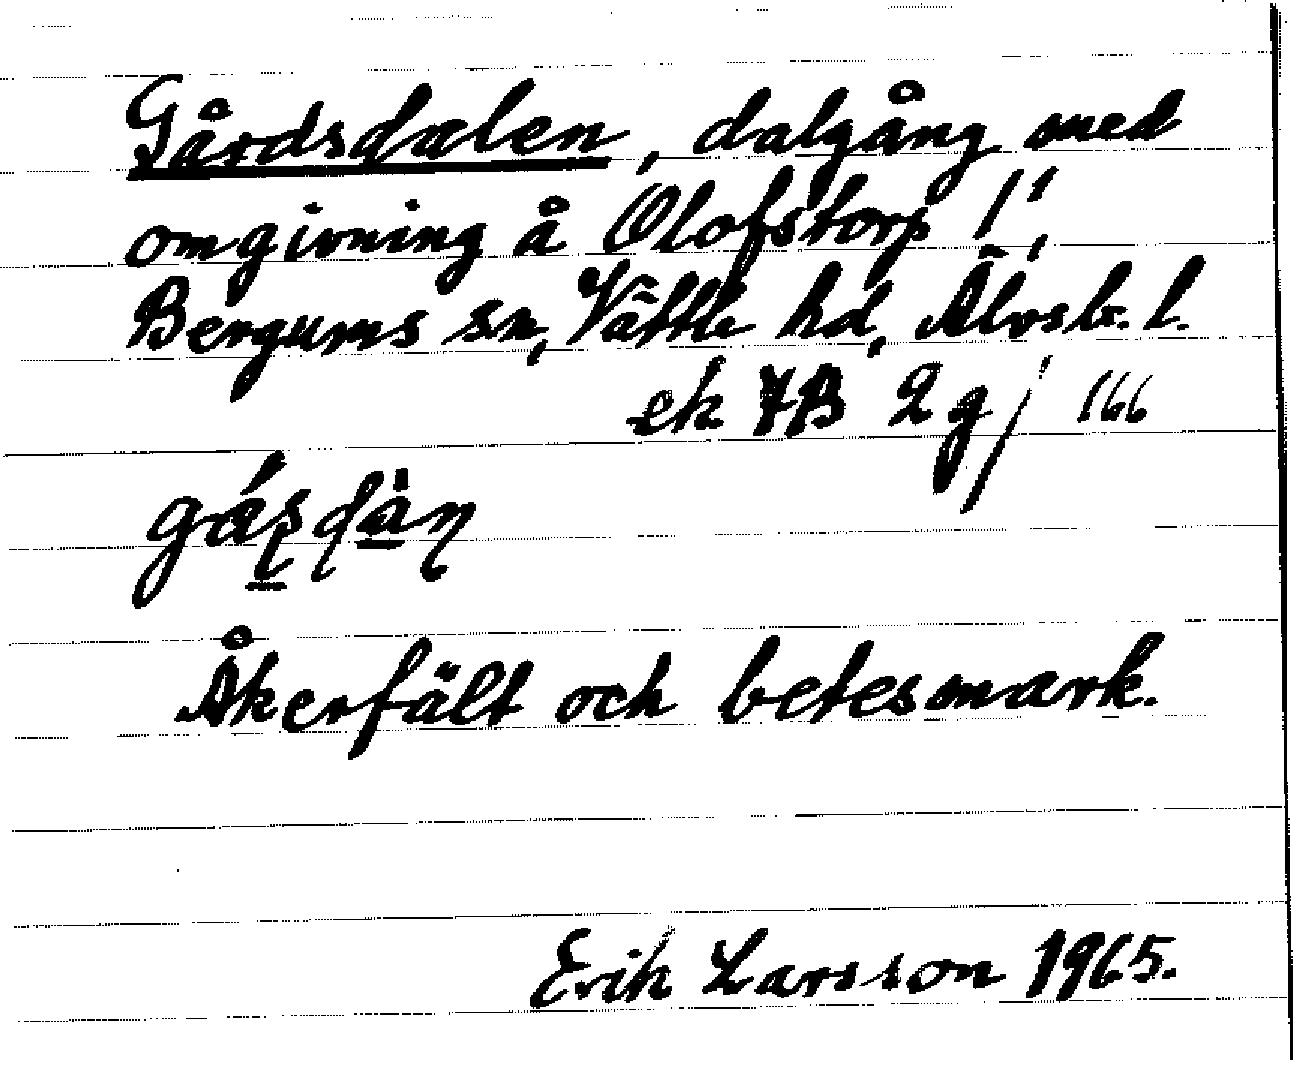 Gårdsdalen, dalgång med
omgivning å Olofstorp 1¹,
Bergums sn, Vättle hd, Älvsb. l.
ek 7B 2 g j 166
Åkerfält och betesmark.
Erik Larsson 1965.